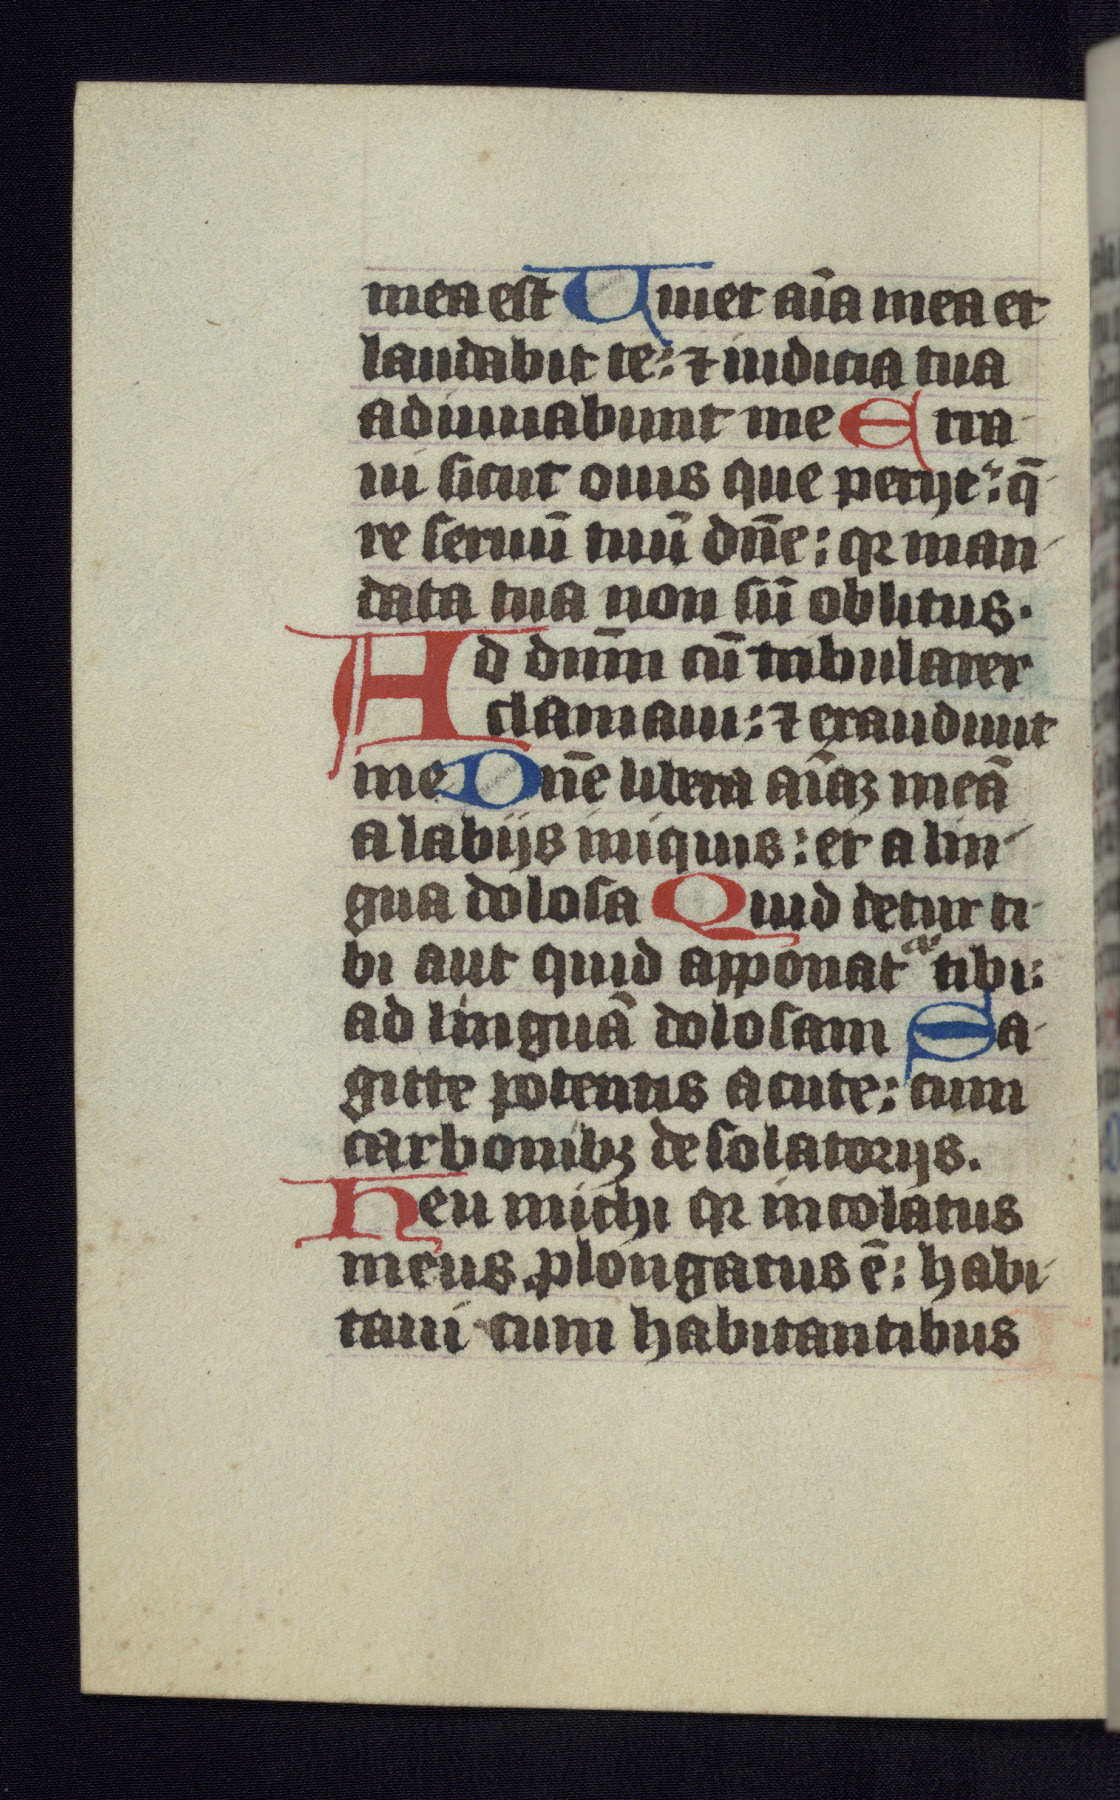 mea est Uiuet aīa mea et
laudabit te: ⁊ iudicia tua
adiuuabunt me Erra-
ui sicut ouis que perijt: q̄-
re seruū tuū dn̄e: qꝛ man-
data tua non sū oblitus.
Ad dnm̄ cū tribularer
clamaui: ⁊ exaudiuit
me Dn̄e libera aīaꝫ meā
a labijs iniquis: et a lin-
gua dolosa Quid detur ti-
bi aut quid apponatᵃ tibi:
ad linguā dolosam Sa-
gitte potentis acute: cum
carbonibꝫ desolatorijs.
Heu michi qꝛ incolatus
meus ꝓlongatus ē: habi-
taui cum habitantibus